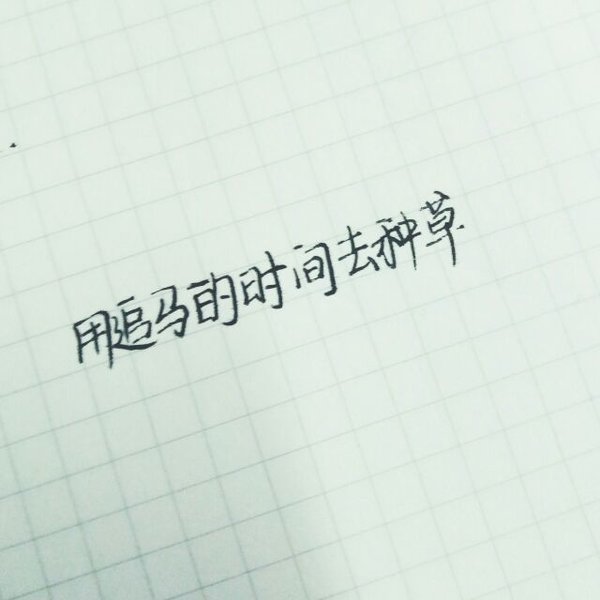 用追马的时间去种草